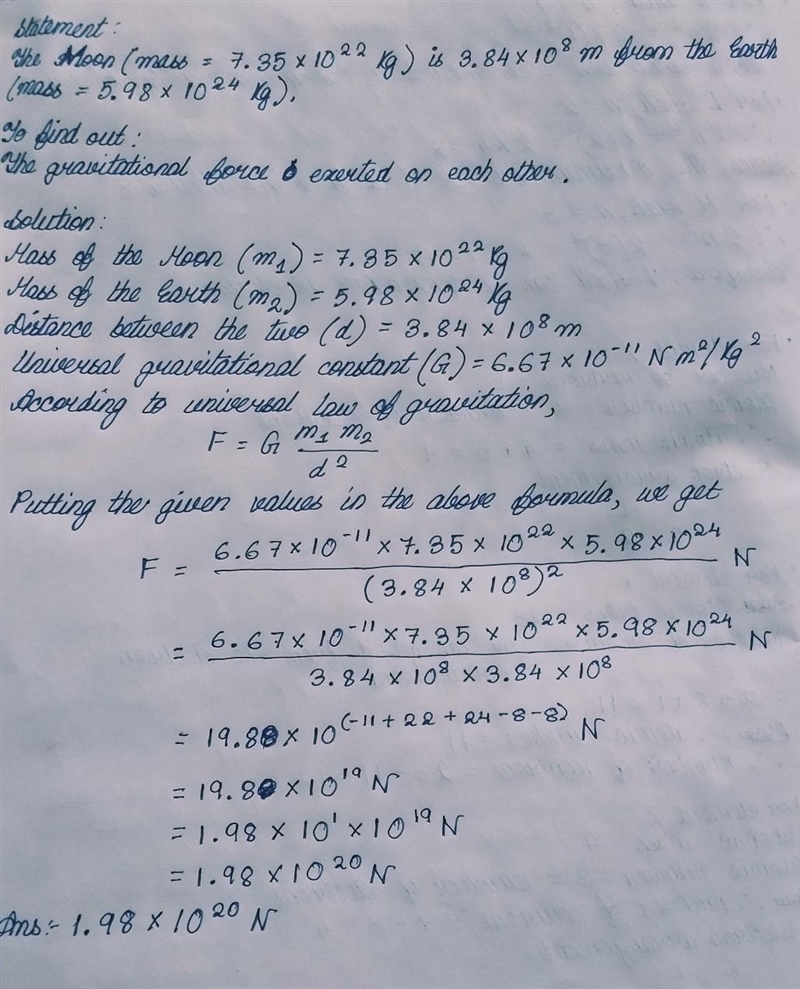 Statement:
The Moon (mass = 7.35 × 10²² Kg) is 3.84 × 10⁸ m from the Earth
(mass = 5.98 × 10²⁴ Kg).
To find out:
The gravitational force exerted on each other.
Solution:
Mass of the Moon (m₁) = 7.35 × 10²² Kg
Mass of the Earth (m₂) = 5.98 × 10²⁴ Kg
Distance between the two (d) = 3.84 × 10⁸ m
Universal gravitational constant (G) = 6.67 × 10⁻¹¹ N m²/Kg²
According to universal law of gravitation,
F = G m₁ m₂
d²
Putting the given values in the above formula, we get
F = 6.67 × 10⁻¹¹ × 7.35 × 10²² × 5.98 × 10²⁴ N
(3.84 × 10⁸)²
= 6.67 × 10⁻¹¹ × 7.35 × 10²² × 5.98 × 10²⁴ N
3.84 × 10⁸ × 3.84 × 10⁸
= 19.8 × 10⁽⁻¹¹ ⁺ ²² ⁺ ²⁴ ⁻ ⁸ ⁻ ⁸⁾ N
= 19.8 × 10¹⁹ N
= 1.98 × 10¹ × 10¹⁹ N
= 1.98 × 10²⁰ N
Ans:- 1.98 × 10²⁰ N